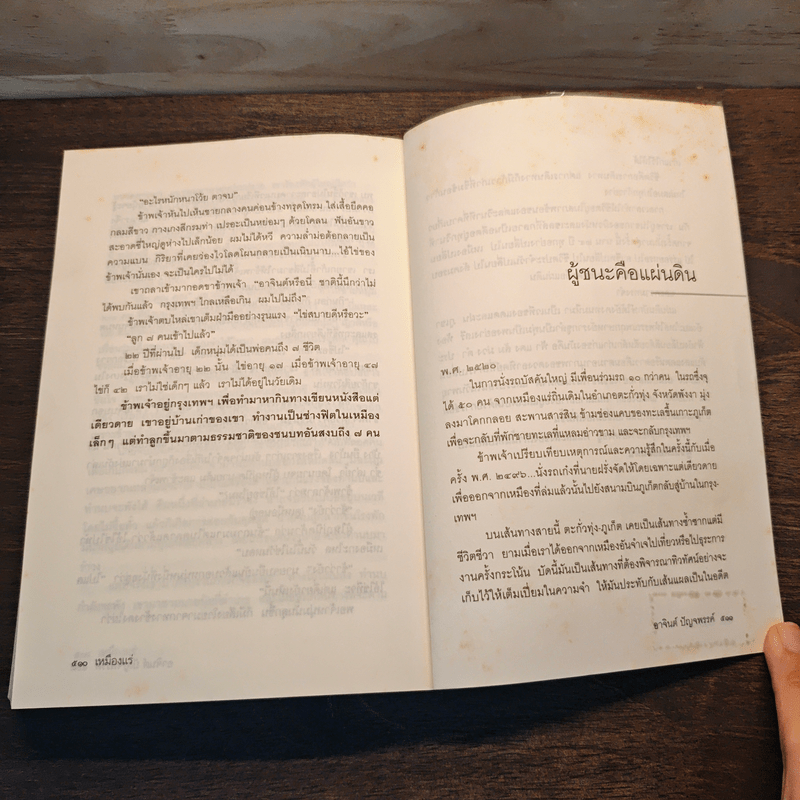 "อะไรหนักหนาโว้ย ตาจบ"
ข้าพเจ้าหันไปเห็นชายกลางคนค่อนข้างทรุดโทรม ใส่เสื้อยืดคอ
กลมสีขาว กางเกงสีกรมท่า เปรอะเป็นหย่อมๆ ด้วยโคลน ฟันอันขาว
สะอาดซี่ใหญ่ดูห่างไปเล็กน้อย ผมไม่ได้หวี ความล่ำม่อต้อกลายเป็น
ความแบน กิริยาที่เคยว่องไวโลดโผนกลายเป็นเนิบนาบ...ไอ้ไข่ของ
ข้าพเจ้านั่นเอง จะเป็นใครไปไม่ได้
เขาถลาเข้ามากอดขาข้าพเจ้า "อาจินต์หรือนี่ ชาตินี้นึกว่าไม่
ได้พบกันแล้ว กรุงเทพฯ ไกลเหลือเกิน ผมไปไม่ถึง"
ข้าพเจ้าตบไหล่เขาเต็มฝ่ามืออย่างรุนแรง "ไข่สบายดีหรือวะ"
"ลูก ๗ คนเข้าไปแล้ว"
๒๒ ปีที่ผ่านไป เด็กหนุ่มได้เป็นพ่อคนถึง ๗ ชีวิต
เมื่อข้าพเจ้าอายุ ๒๒ นั้น ไข่อายุ ๑๗ เมื่อข้าพเจ้าอายุ ๔๗
ไข่ก็ ๔๒ เราไม่ใช่เด็กๆ แล้ว เราไม่ได้อยู่ในวัยเดิม
ข้าพเจ้าอยู่กรุงเทพฯ เพื่อทำมาหากินทางเขียนหนังสือแต่
เดียวดาย เขาอยู่บ้านเก่าของเขา ทำงานเป็นช่างฟิตในเหมือง
เล็กๆ แต่ทำลูกขึ้นมาตามธรรมชาติของชนบทอันสงบถึง ๗ คน
๕๑๐ เหมืองแร่
ผู้ชนะคือแผ่นดิน
พ.ศ. ๒๕๒๐
ในการนั่งรถบัสคันใหญ่ มีเพื่อนร่วมรถ ๑๐ กว่าคน ในรถซึ่งจุ
ได้ ๕๐ คน จากเหมืองแร่ถิ่นเดิมในอำเภอตะกั่วทุ่ง จังหวัดพังงา มุ่ง
ลงมาโคกกลอย สะพานสารสิน ข้ามช่องแคบของทะเลขึ้นเกาะภูเก็ต
เพื่อจะกลับที่พักชายทะเลที่แหลมอ่าวขาม และจะกลับกรุงเทพฯ
ข้าพเจ้าเปรียบเทียบเหตุการณ์และความรู้สึกในครั้งนี้กับเมื่อ
ครั้ง พ.ศ. ๒๔๙๖...นั่งรถเก๋งที่นายฝรั่งจัดให้โดยเฉพาะแต่เดียวดาย
เพื่อออกจากเหมืองที่ล่มแล้วนั้นไปยังสนามบินภูเก็ตกลับสู่บ้านในกรุง-
เทพฯ
บนเส้นทางสายนี้ ตะกั่วทุ่ง-ภูเก็ต เคยเป็นเส้นทางซ้ำซากแต่มี
ชีวิตชีวา ยามเมื่อเราได้ออกจากเหมืองอันจำเจไปเที่ยวหรือไปธุระการ
งานครั้งกระโน้น บัดนี้มันเป็นเส้นทางที่ต้องพิจารณาทิวทัศน์อย่างจะ
เก็บไว้ให้เต็มเปี่ยมในความจำ ให้มันประทับกับเส้นแผลเป็นในอดีต
อาจินต์ ปัญจพรรค์ ๕๑๑